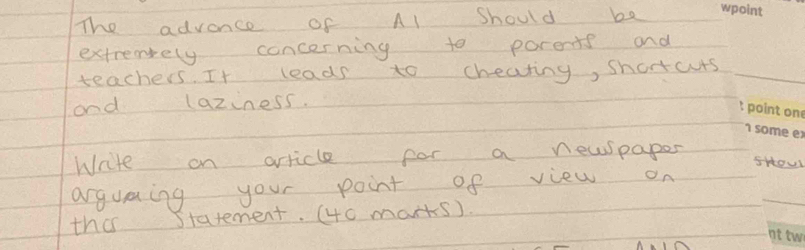 The advance of AI should be
extremely concerning to parents and
teachers. It leads to cheating, shortcuts
and laziness.
Write an article for a newspaper
arguing your point of view on
this statement. (40 marks).
wpoint
point one
some ex
nt tw